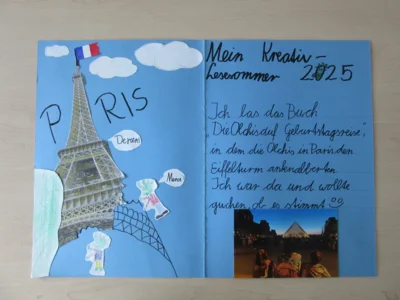 PARIS
Mein Kreativ-
Lesesommer 2025
Ich las das Buch
"Die Olchis auf Geburtstagsreise",
in dem die Olchis in Paris den
Eiffelturm
Ich war da und wollte
gucken, ob es stimmt